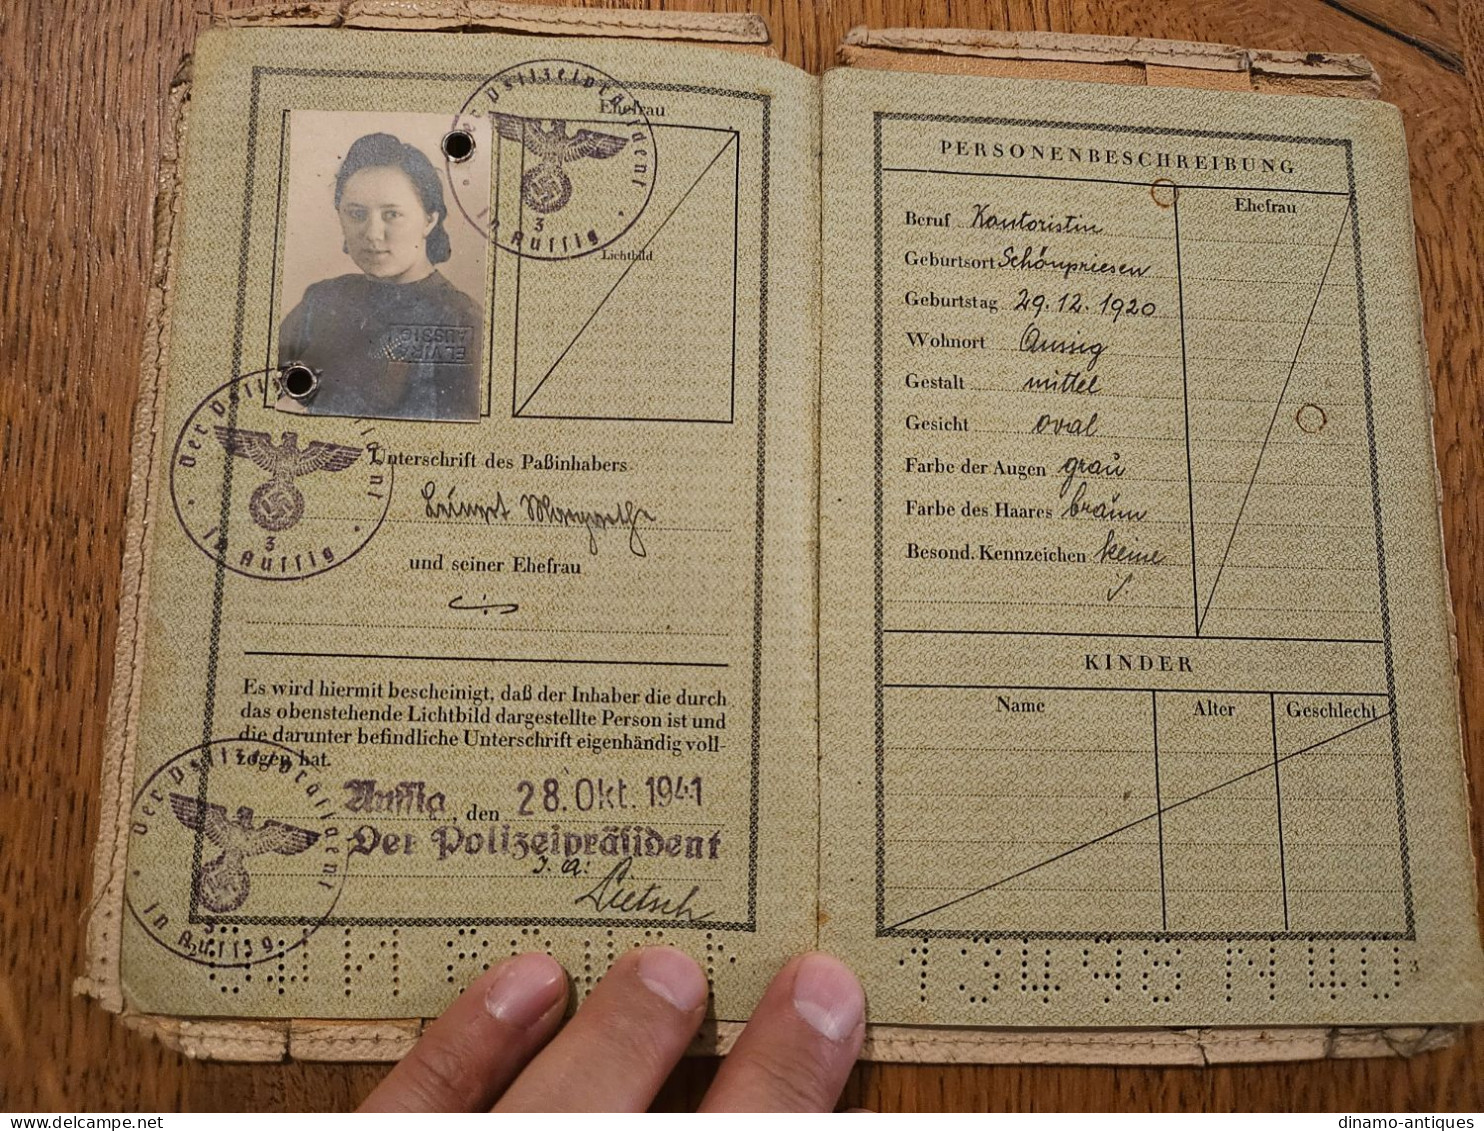 Ehefrau
Lichtbild
ELVIRA
AUSSIG
Der Polizeipräsident
in Aussig
3
Unterschrift des Paßinhabers
Margarethe
Der Polizeipräsident
in Aussig
3
und seiner Ehefrau
Es wird hiermit bescheinigt, daß der Inhaber die durch
das obenstehende Lichtbild dargestellte Person ist und
die darunter befindliche Unterschrift eigenhändig voll-
zogen hat.
Aussig, den 28. Okt. 1941
Der Polizeipräsident
J. A:
Lietsch
Der Polizeipräsident
in Aussig
3
PERSONENBESCHREIBUNG
Ehefrau
Beruf Kontoristin
Geburtsort Schönpriesen
Geburtstag 29.12.1920
Wohnort Aussig
Gestalt mittel
Gesicht oval
Farbe der Augen grau
Farbe des Haares braun
Besond. Kennzeichen keine
KINDER
Name Alter Geschlecht
3
dinamo-antiques